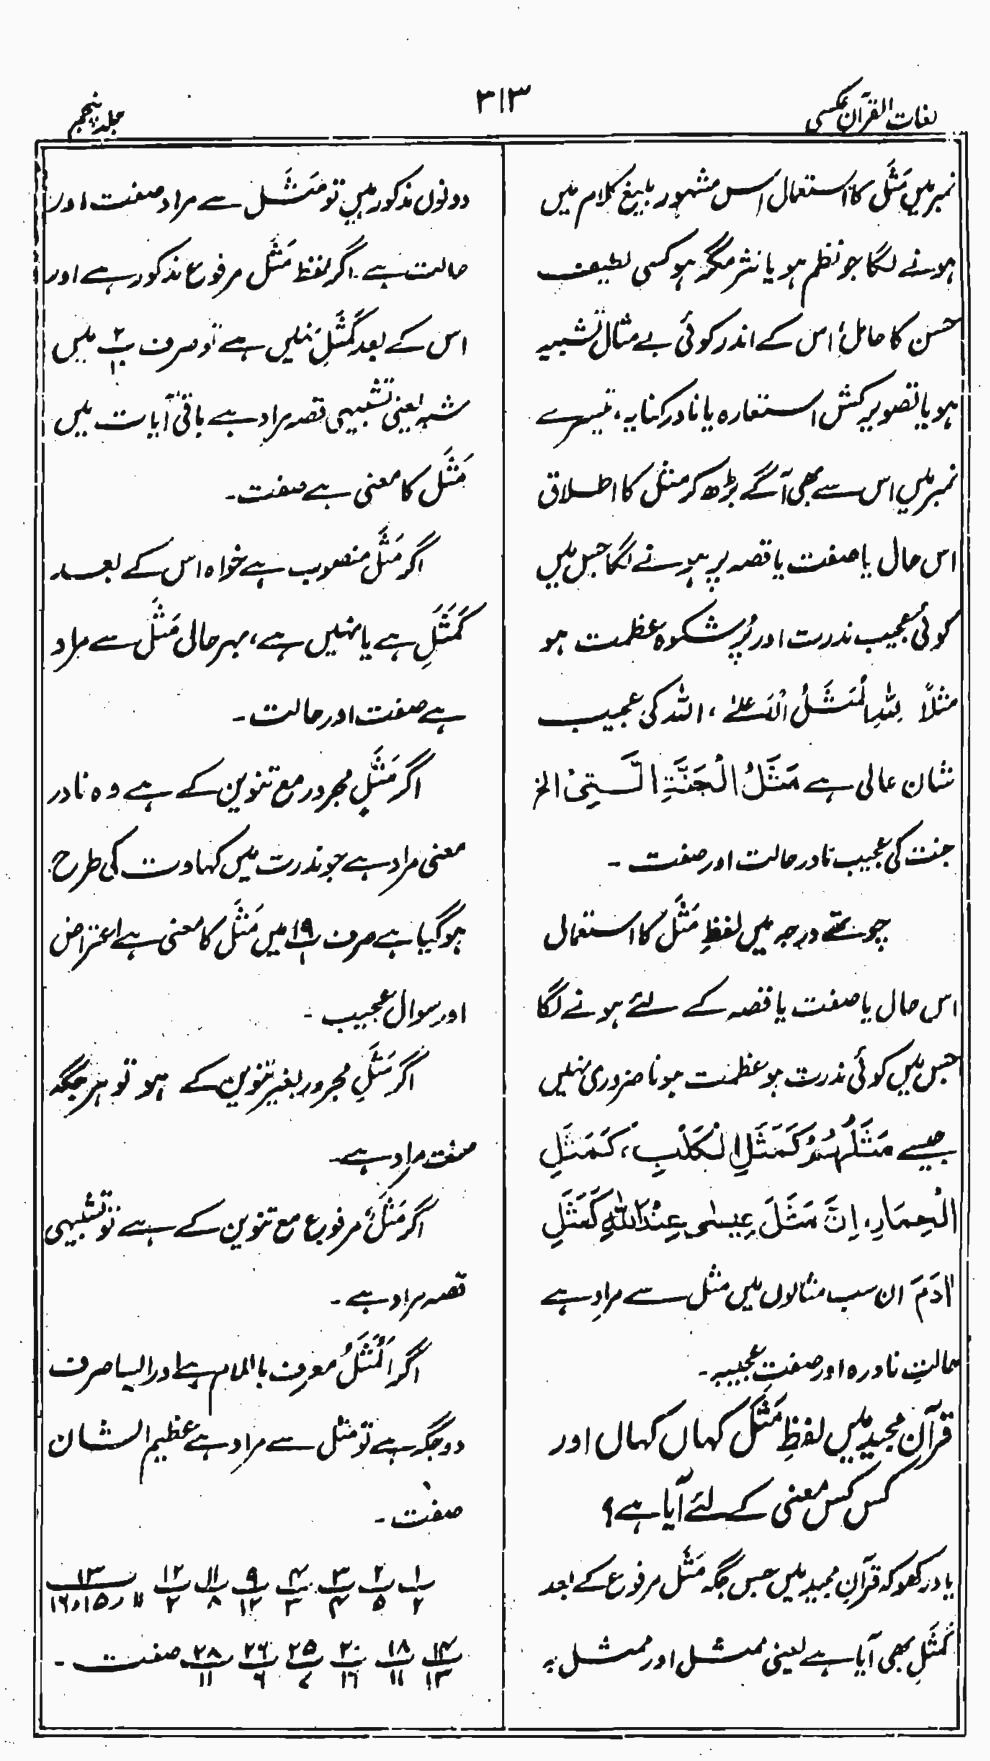 لغات القرآن عکسی
۳۱۳
جلد پنجم
نمبر میں مَثَل کا استعمال اس مشہور بلیغ کلام میں
ہونے لگا جو نظم ہو یا نثر مگر ہو کسی لطیف
حسن کا حامل اس کے اندر کوئی بے مثال تشبیہ
ہو یا تصویر کش استعارہ یا نادر کنایہ، تیسرے
نمبر میں اس سے بھی آگے بڑھ کر مثل کا اطلاق
اس حال یا صفت یا قصہ پر ہونے لگا جس میں
کوئی عجیب ندرت اور پُرشکوہ عظمت ہو
مثلاً لِلّٰہِ الْمَثَلُ الْاَعْلٰے، اللہ کی عجیب
شان عالی ہے مَثَلُ الْجَنَّۃِ الَّتِیْ الخ
جنت کی عجیب نادر حالت اور صفت ۔
چوتھے درجہ میں لفظِ مَثَل کا استعمال
اس حال یا صفت یا قصہ کے لئے ہونے لگا
جس میں کوئی ندرت ہو عظمت ہونا ضروری نہیں
جیسے مَثَلُہُمْ کَمَثَلِ الْکَلْبِ، کَمَثَلِ
الْحِمَارِ، اِنَّ مَثَلَ عِیسٰی عِنْدَ اللّٰہِ کَمَثَلِ
اٰدَمَ ان سب مثالوں میں مثل سے مراد ہے
حالتِ نادرہ اور صفتِ عجیبہ ۔
قرآن مجید میں لفظِ مَثَل کہاں کہاں اور
کس کس معنی کے لئے آیا ہے؟
یاد رکھو کہ قرآن مجید میں جس جگہ مَثَل مرفوع کے بعد
کَمَثَلِ بھی آیا ہے یعنی ممثل اور ممثل بہ
دونوں مذکور ہیں تو مَثَل سے مراد صفت اور
حالت ہے ۔ اگر لفظ مَثَل مرفوع مذکور ہے اور
اس کے بعد کَمَثَلِ نہیں ہے تو صرف ۲/۱ میں
شبہ یعنی تشبیہی قصہ مراد ہے باقی آیات میں
مَثَل کا معنی ہے صفت ۔
اگر مَثَلَ منصوب ہے خواہ اس کے بعد
کَمَثَلِ ہے یا نہیں ہے، بہرحال مَثَل سے مراد
ہے صفت اور حالت ۔
اگر مَثَلٍ مجرور مع تنوین کے ہے وہ نادر
معنی مراد ہے جو ندرت میں کہاوت کی طرح
ہو گیا ہے صرف ۱۹/۱ میں مَثَل کا معنی ہے اعتراض
اور سوال عجیب ۔
اگر مَثَلِ مجرور بغیر تنوین کے ہو تو ہر جگہ
صفت مراد ہے ۔
اگر مَثَلٌ مرفوع مع تنوین کے ہے تو تشبیہی
قصہ مراد ہے ۔
اگر اَلْمَثَلُ معرف باللام ہے اور ایسا صرف
دو جگہ ہے تو مثل سے مراد ہے عظیم الشان
صفت ۔
۱/۲ ۲/۵ ۳/۴ ۴/۳ ۹/۱۲ ۱۱/۸ ۱۲/۲ ۱۳/۱۱ و ۱۵ و ۱۶
۱۴/۱۳ ۱۸/۱۱ ۲۰/۱۶ ۲۵/۷ ۲۶/۶ ۲۸/۱۱ صفت ۔